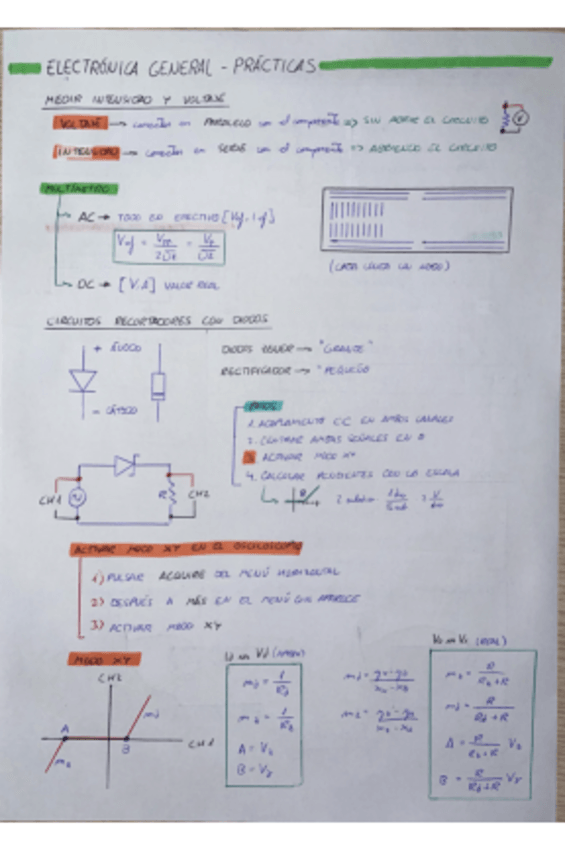 ELECTRÓNICA GENERAL - PRÁCTICAS
MEDIR INTENSIDAD Y VOLTAJE
VOLTAJE → conectar en PARALELO con el componente => SIN ABRIR EL CIRCUITO
V
INTENSIDAD → conectar en SERIE con el componente => ABRIENDO EL CIRCUITO
MULTÍMETRO
AC → TODO EN EFECTIVO [Vef, Ief]
Vef = Vpp / 2√2 = Vp / √2
DC → [V, A] VALOR REAL
(CADA LÍNEA UN NODO)
CIRCUITOS RECORTADORES CON DIODOS
+ ÁNODO
- CÁTODO
DIODO ZENER → "GRANDE"
RECTIFICADOR → "PEQUEÑO
PASOS
1. ACOPLAMIENTO CC EN AMBOS CANALES
2. CENTRAR AMBAS SEÑALES EN 0
3. ACTIVAR MODO XY
4. CALCULAR PENDIENTES CON LA ESCALA
CH1
R
CH2
ACTIVAR MODO XY EN EL OSCILOSCOPIO
1) PULSAR ACQUIRE DEL MENÚ HORIZONTAL
2) DESPUÉS A MÁS EN EL MENÚ QUE APARECE
3) ACTIVAR MODO XY
MODO XY
CH2
CH1
A
B
md
mz
Id vs Vd
md = 1 / Rd
mz = 1 / Rz
A = Vz
B = Vγ
(REAL)
mz = R / Rz+R
md = R / Rd+R
A = R / Rz+R Vz
B = R / Rd+R Vγ